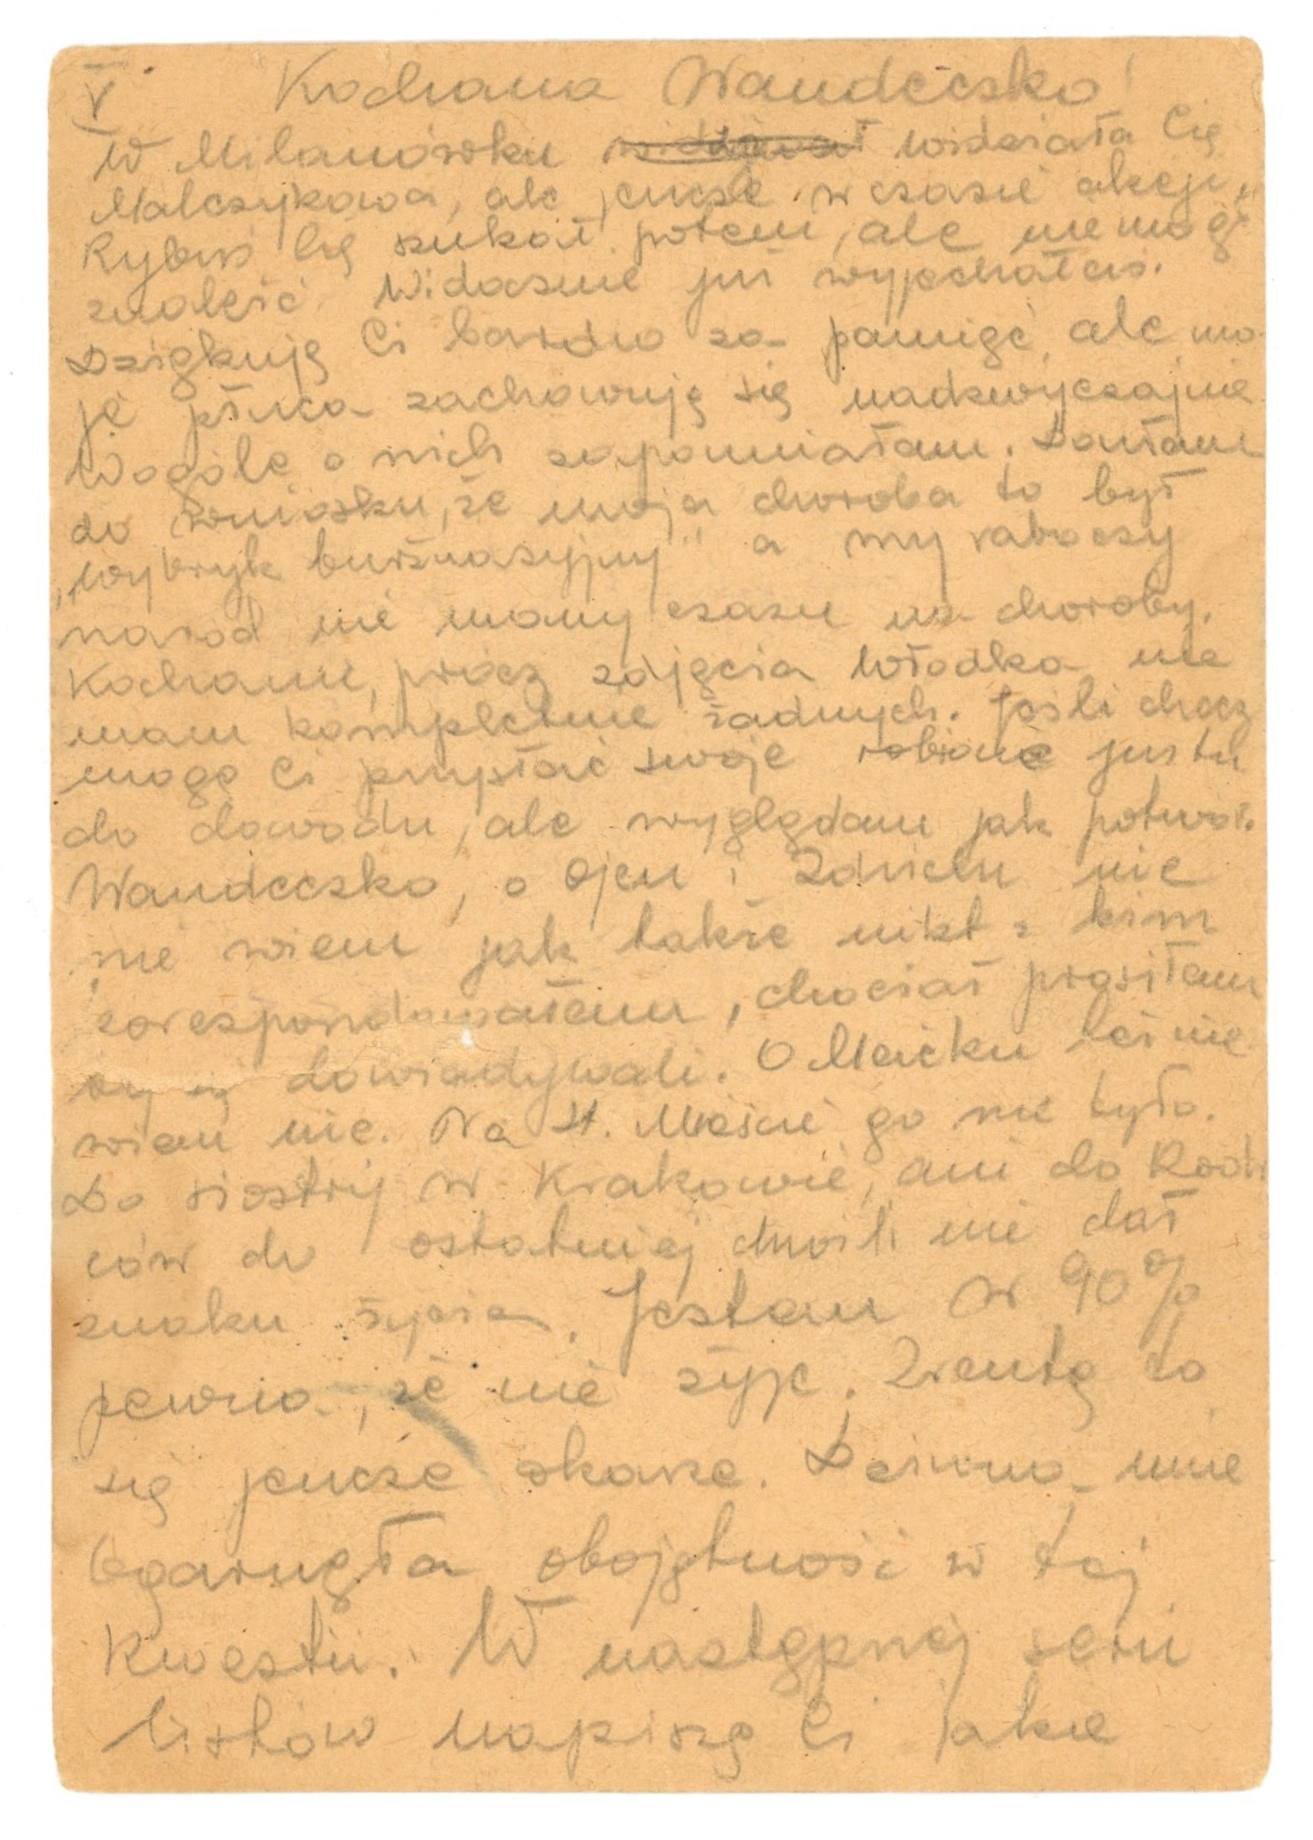 V Kochana Wandeczko!
W Milanówku widziała Cię
Malczykowa, ale jeszcze w czasie akcji.
Rybiś Cię szukał potem, ale nie mógł
znaleść. Widocznie już wyjechałaś.
Dziękuję Ci bardzo za pamięć, ale mo-
je płuca zachowują się nadzwyczajnie
Wogóle o nich zapomniałam. Doszłam
do wniosku, że moja choroba to był
"wybryk burżuazyjny" a my raboczy
narod nie mamy czasu na choroby.
Kochanie, prócz zdjęcia Włodka nie
mam kompletnie żadnych. Jeśli chcesz
mogę Ci przysłać swoje robione już tu
do dowodu, ale wyglądam jak potwór.
Wandeczko, o Ojcu i Zdzichu nic
nie wiem jak także nikt z kim
korespondowałam, chociaż prosiłam
by się dowiadywali. O Maćku też nie
wiem nic. Na St. Mieście go nie było.
Do siostry w Krakowie, ani do Rodzi
ców do ostatniej chwili nie dał
znaku życia. Jestem w 90%
pewna, że nie żyje. Zresztą to
się jeszcze okaże. Dziwna mnie
ogarnęła obojętność w tej
kwestii. W następnej serii
listów napiszę Ci jakie